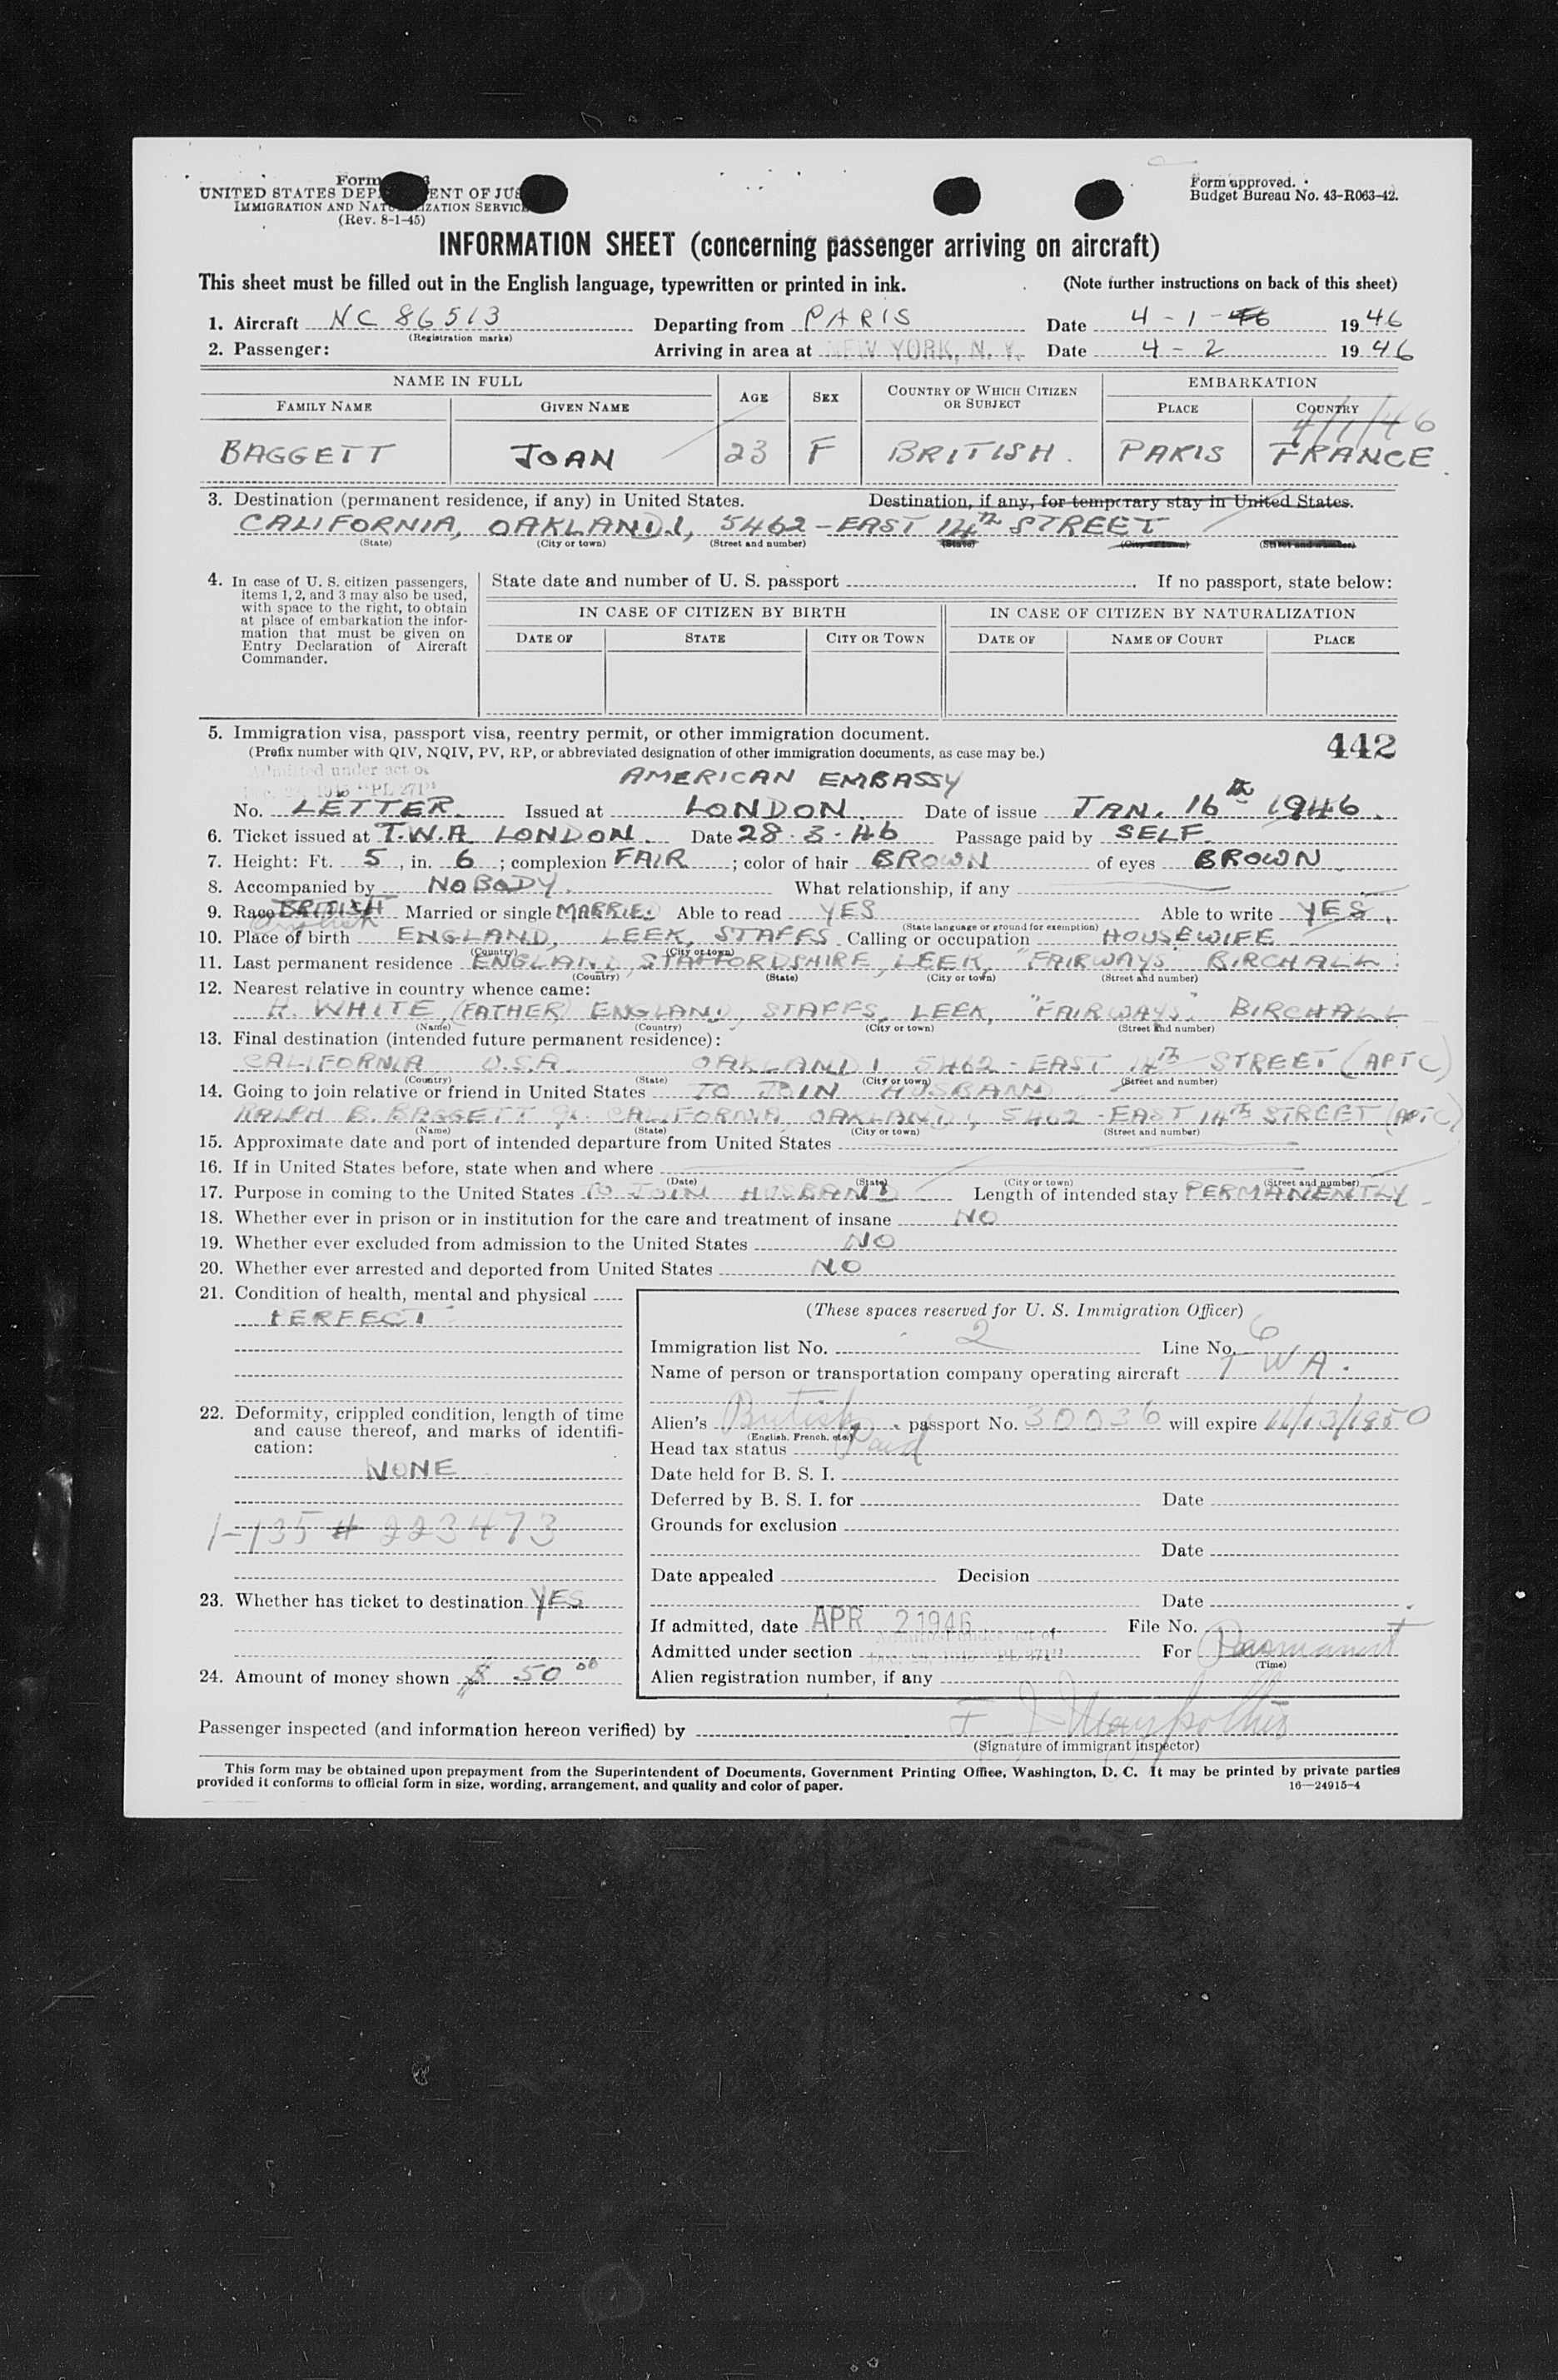 Form
UNITED STATES DEP ENT OF JUS
IMMIGRATION AND NATU IZATION SERVICE
(Rev. 8-1-45)
Form approved.
Budget Bureau No. 43-R063-42.
INFORMATION SHEET (concerning passenger arriving on aircraft)
This sheet must be filled out in the English language, typewritten or printed in ink. (Note further instructions on back of this sheet)
1. Aircraft NC 86513 Departing from PARIS Date 4-1-46 1946
(Registration marks)
2. Passenger: Arriving in area at NEW YORK, N. Y. Date 4-2 1946
NAME IN FULL AGE SEX COUNTRY OF WHICH CITIZEN OR SUBJECT EMBARKATION
FAMILY NAME GIVEN NAME PLACE COUNTRY
4/1/46
BAGGETT JOAN 23 F BRITISH. PARIS FRANCE
3. Destination (permanent residence, if any) in United States. Destination, if any, for temporary stay in United States.
CALIFORNIA, OAKLAND 1, 5462-EAST 14TH STREET
(State) (City or town) (Street and number) (State) (City or town) (Street and number)
4. In case of U. S. citizen passengers, items 1, 2, and 3 may also be used, with space to the right, to obtain at place of embarkation the information that must be given on Entry Declaration of Aircraft Commander.
State date and number of U. S. passport If no passport, state below:
IN CASE OF CITIZEN BY BIRTH IN CASE OF CITIZEN BY NATURALIZATION
DATE OF STATE CITY OR TOWN DATE OF NAME OF COURT PLACE
5. Immigration visa, passport visa, reentry permit, or other immigration document. 442
(Prefix number with QIV, NQIV, PV, RP, or abbreviated designation of other immigration documents, as case may be.)
Admitted under act of
PL 271 AMERICAN EMBASSY
No. LETTER. Issued at LONDON. Date of issue JAN. 16th 1946.
6. Ticket issued at T.W.A LONDON. Date 28.3.46 Passage paid by SELF
7. Height: Ft. 5, in. 6; complexion FAIR; color of hair BROWN of eyes BROWN
8. Accompanied by NOBODY. What relationship, if any
9. Race BRITISH English Married or single MARRIED Able to read YES Able to write YES.
(State language or ground for exemption)
10. Place of birth ENGLAND, LEEK, STAFFS Calling or occupation HOUSEWIFE
(Country) (City or town)
11. Last permanent residence ENGLAND, STAFFORDSHIRE, LEEK, "FAIRWAYS" BIRCHALL
(Country) (State) (City or town) (Street and number)
12. Nearest relative in country whence came:
H. WHITE (FATHER) ENGLAND, STAFFS, LEEK, "FAIRWAYS". BIRCHALL
(Name) (Country) (City or town) (Street and number)
13. Final destination (intended future permanent residence):
CALIFORNIA U.S.A. OAKLAND 1 5462-EAST 14TH STREET (APT C)
(Country) (State) (City or town) (Street and number)
14. Going to join relative or friend in United States TO JOIN HUSBAND
RALPH B. BAGGETT Jr. CALIFORNIA, OAKLAND 1, 5462-EAST 14TH STREET (APT C)
(Name) (State) (City or town) (Street and number)
15. Approximate date and port of intended departure from United States
16. If in United States before, state when and where
(Date) (State) (City or town) (Street and number)
17. Purpose in coming to the United States TO JOIN HUSBAND Length of intended stay PERMANENTLY
18. Whether ever in prison or in institution for the care and treatment of insane NO
19. Whether ever excluded from admission to the United States NO
20. Whether ever arrested and deported from United States NO
21. Condition of health, mental and physical
PERFECT
22. Deformity, crippled condition, length of time and cause thereof, and marks of identification:
NONE
1-135 # 223473
23. Whether has ticket to destination YES
24. Amount of money shown $ 50 00
(These spaces reserved for U. S. Immigration Officer)
Immigration list No. 2 Line No. 6
Name of person or transportation company operating aircraft TWA.
Alien's British passport No. 30036 will expire 11/13/1950
(English, French, etc.)
Head tax status Paid
Date held for B. S. I.
Deferred by B. S. I. for Date
Grounds for exclusion
Date
Date appealed Decision
Date
If admitted, date APR 2 1946 File No.
Admitted under act of
Admitted under section PL 271 For Permanent
(Time)
Alien registration number, if any
Passenger inspected (and information hereon verified) by
(Signature of immigrant inspector)
This form may be obtained upon prepayment from the Superintendent of Documents, Government Printing Office, Washington, D. C. It may be printed by private parties
provided it conforms to official form in size, wording, arrangement, and quality and color of paper. 16—24915-4